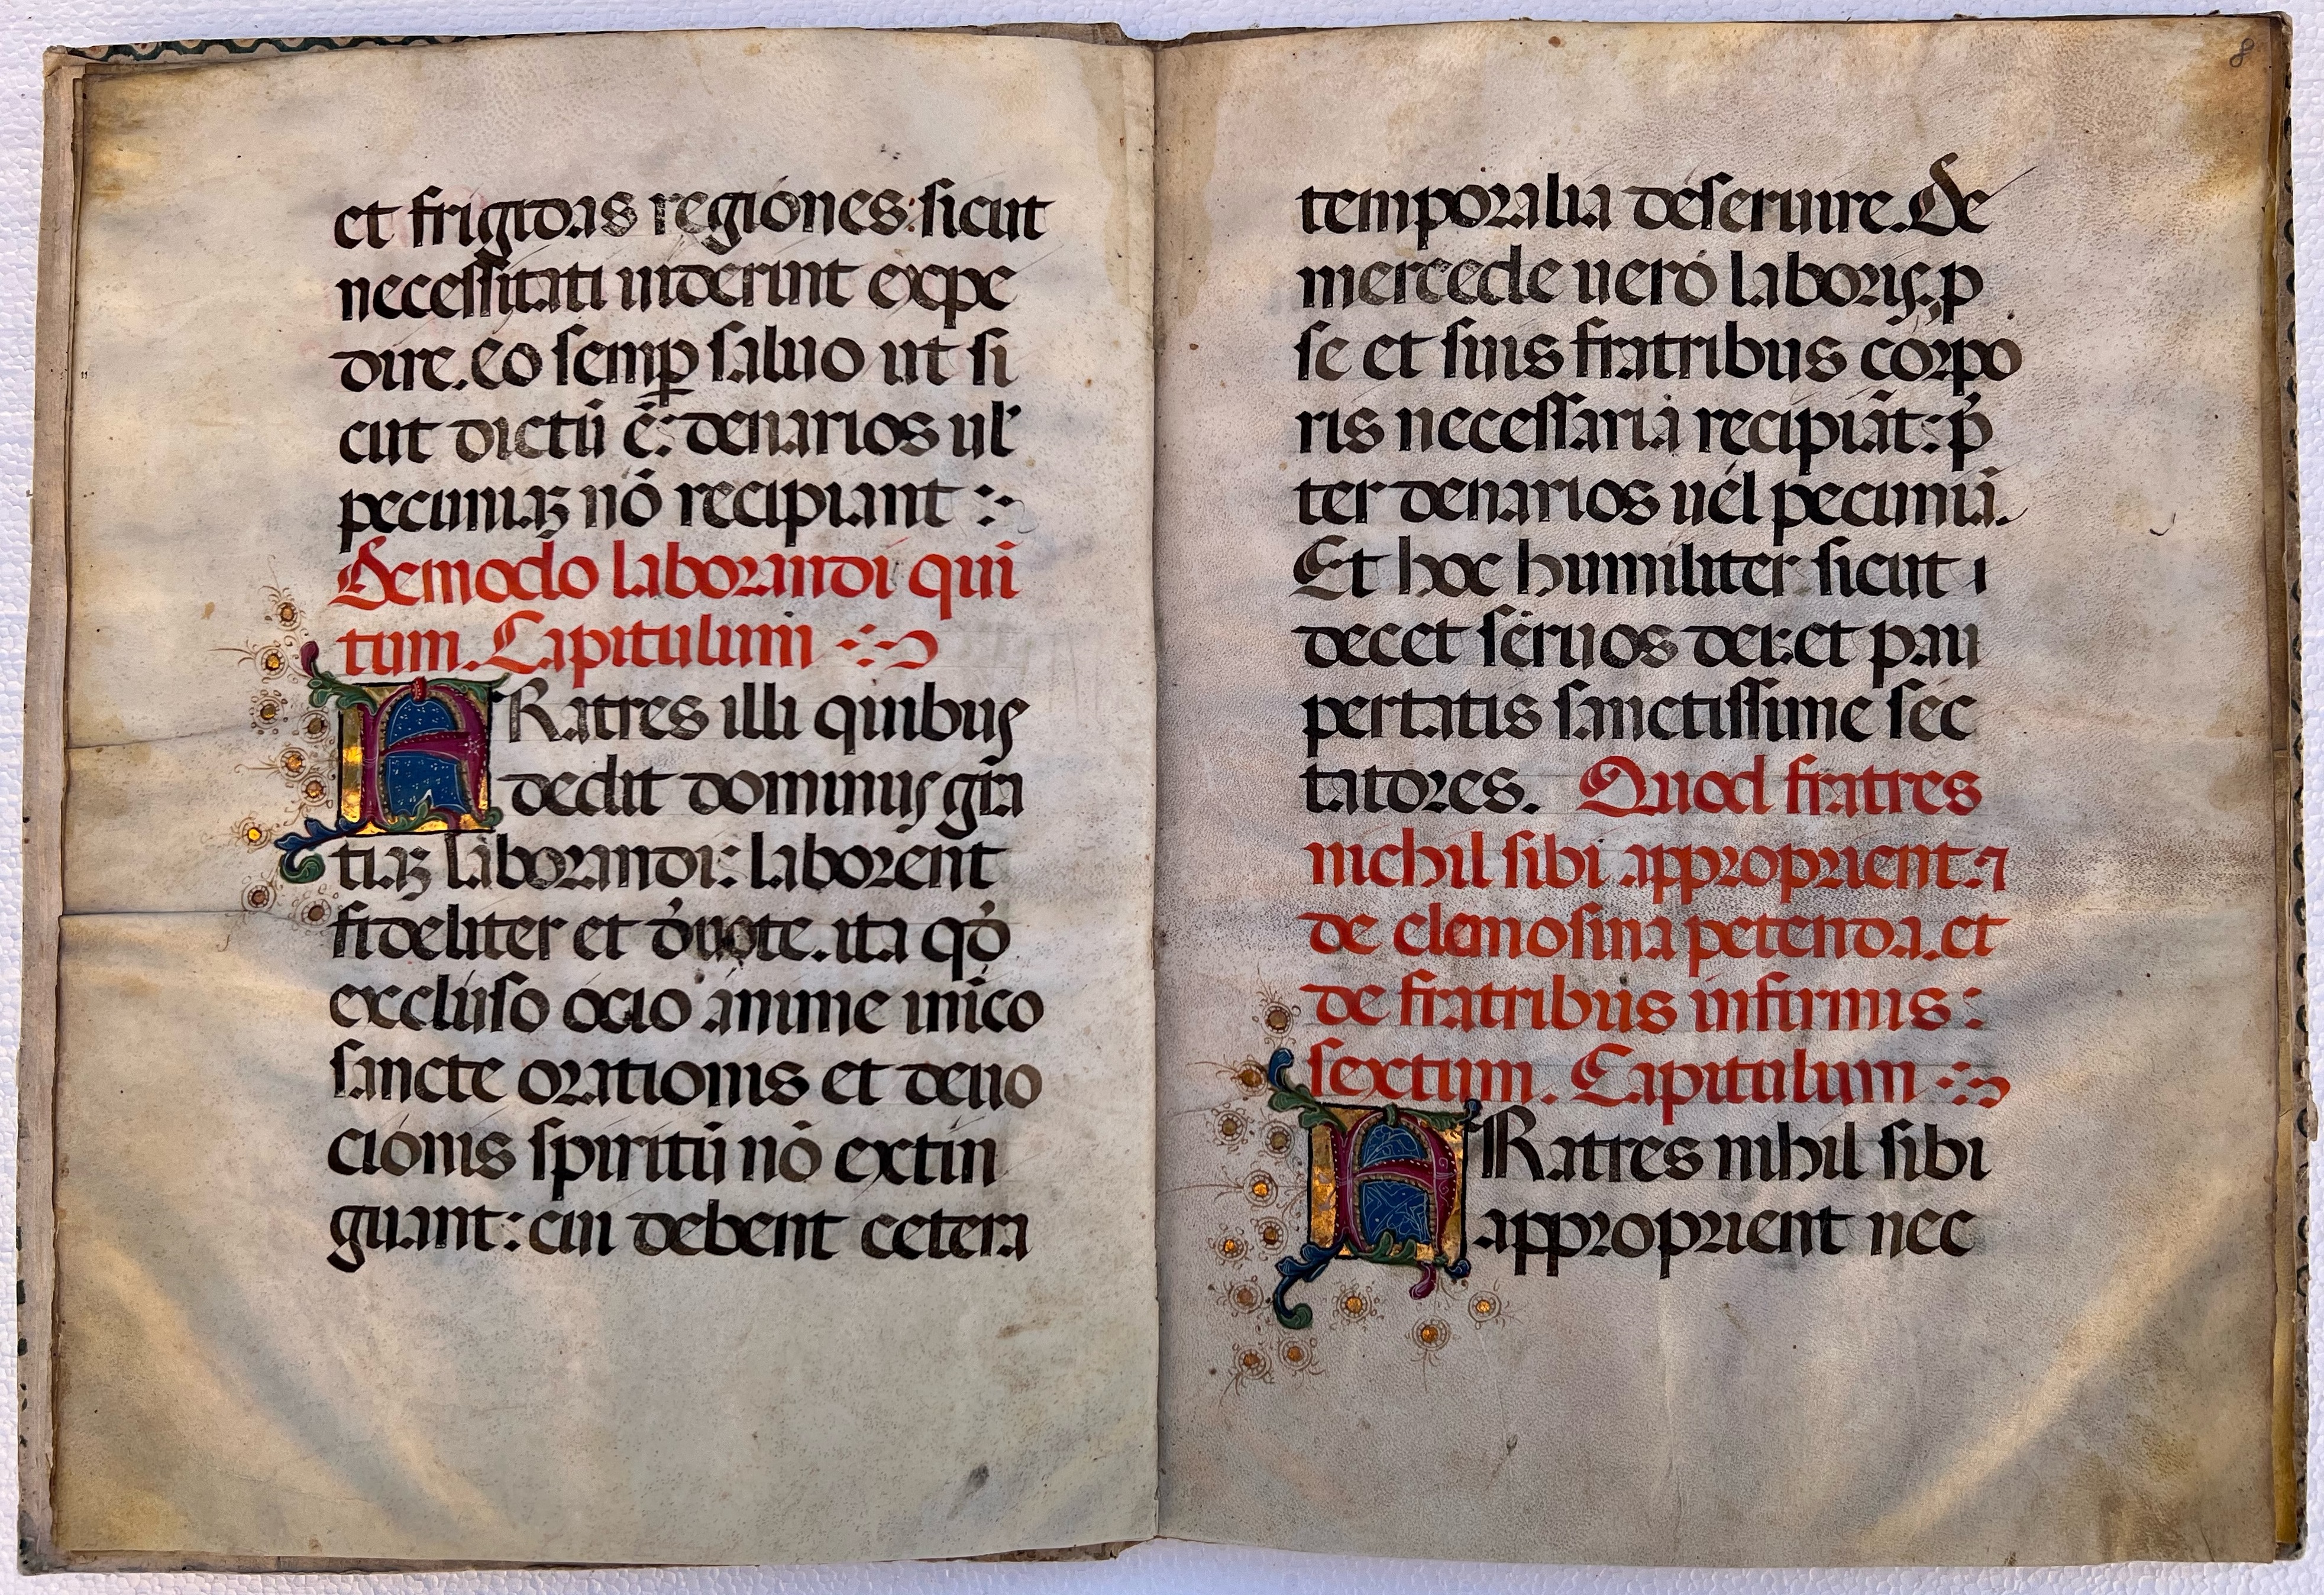 et frigidas regiones: sicut
necessitati uiderint expe
dire. eo semꝑ saluo ut si
cut dictū ē: denarios ul'
pecuniaꝫ nō recipiant :~
De modo laborandi qui
tum. Capitulum :~
FRatres illi quibus
dedit dominus gr̄a
tiaꝫ laborandi: laborent
fideliter et d'uote. ita qď
excluso ocio anime inīco
sancte orationis et deuo
cionis spiritū nō extin
guant: cui debent cetera
8
temporalia deseruire. De
mercede uero laboris. p
se et suis fratribus corpo
ris necessaria recipiāt: p̄
ter denarios uel pecuniā.
Et hoc humiliter sicut
decet seruos dei: et pau
pertatis sanctissime sec
tatores. Quod fratres
nichil sibi approprient: ⁊
de elemosina petenda. et
de fratribus infirmis:
sextum. Capitulum :~
FRatres nihil sibi
approprient nec